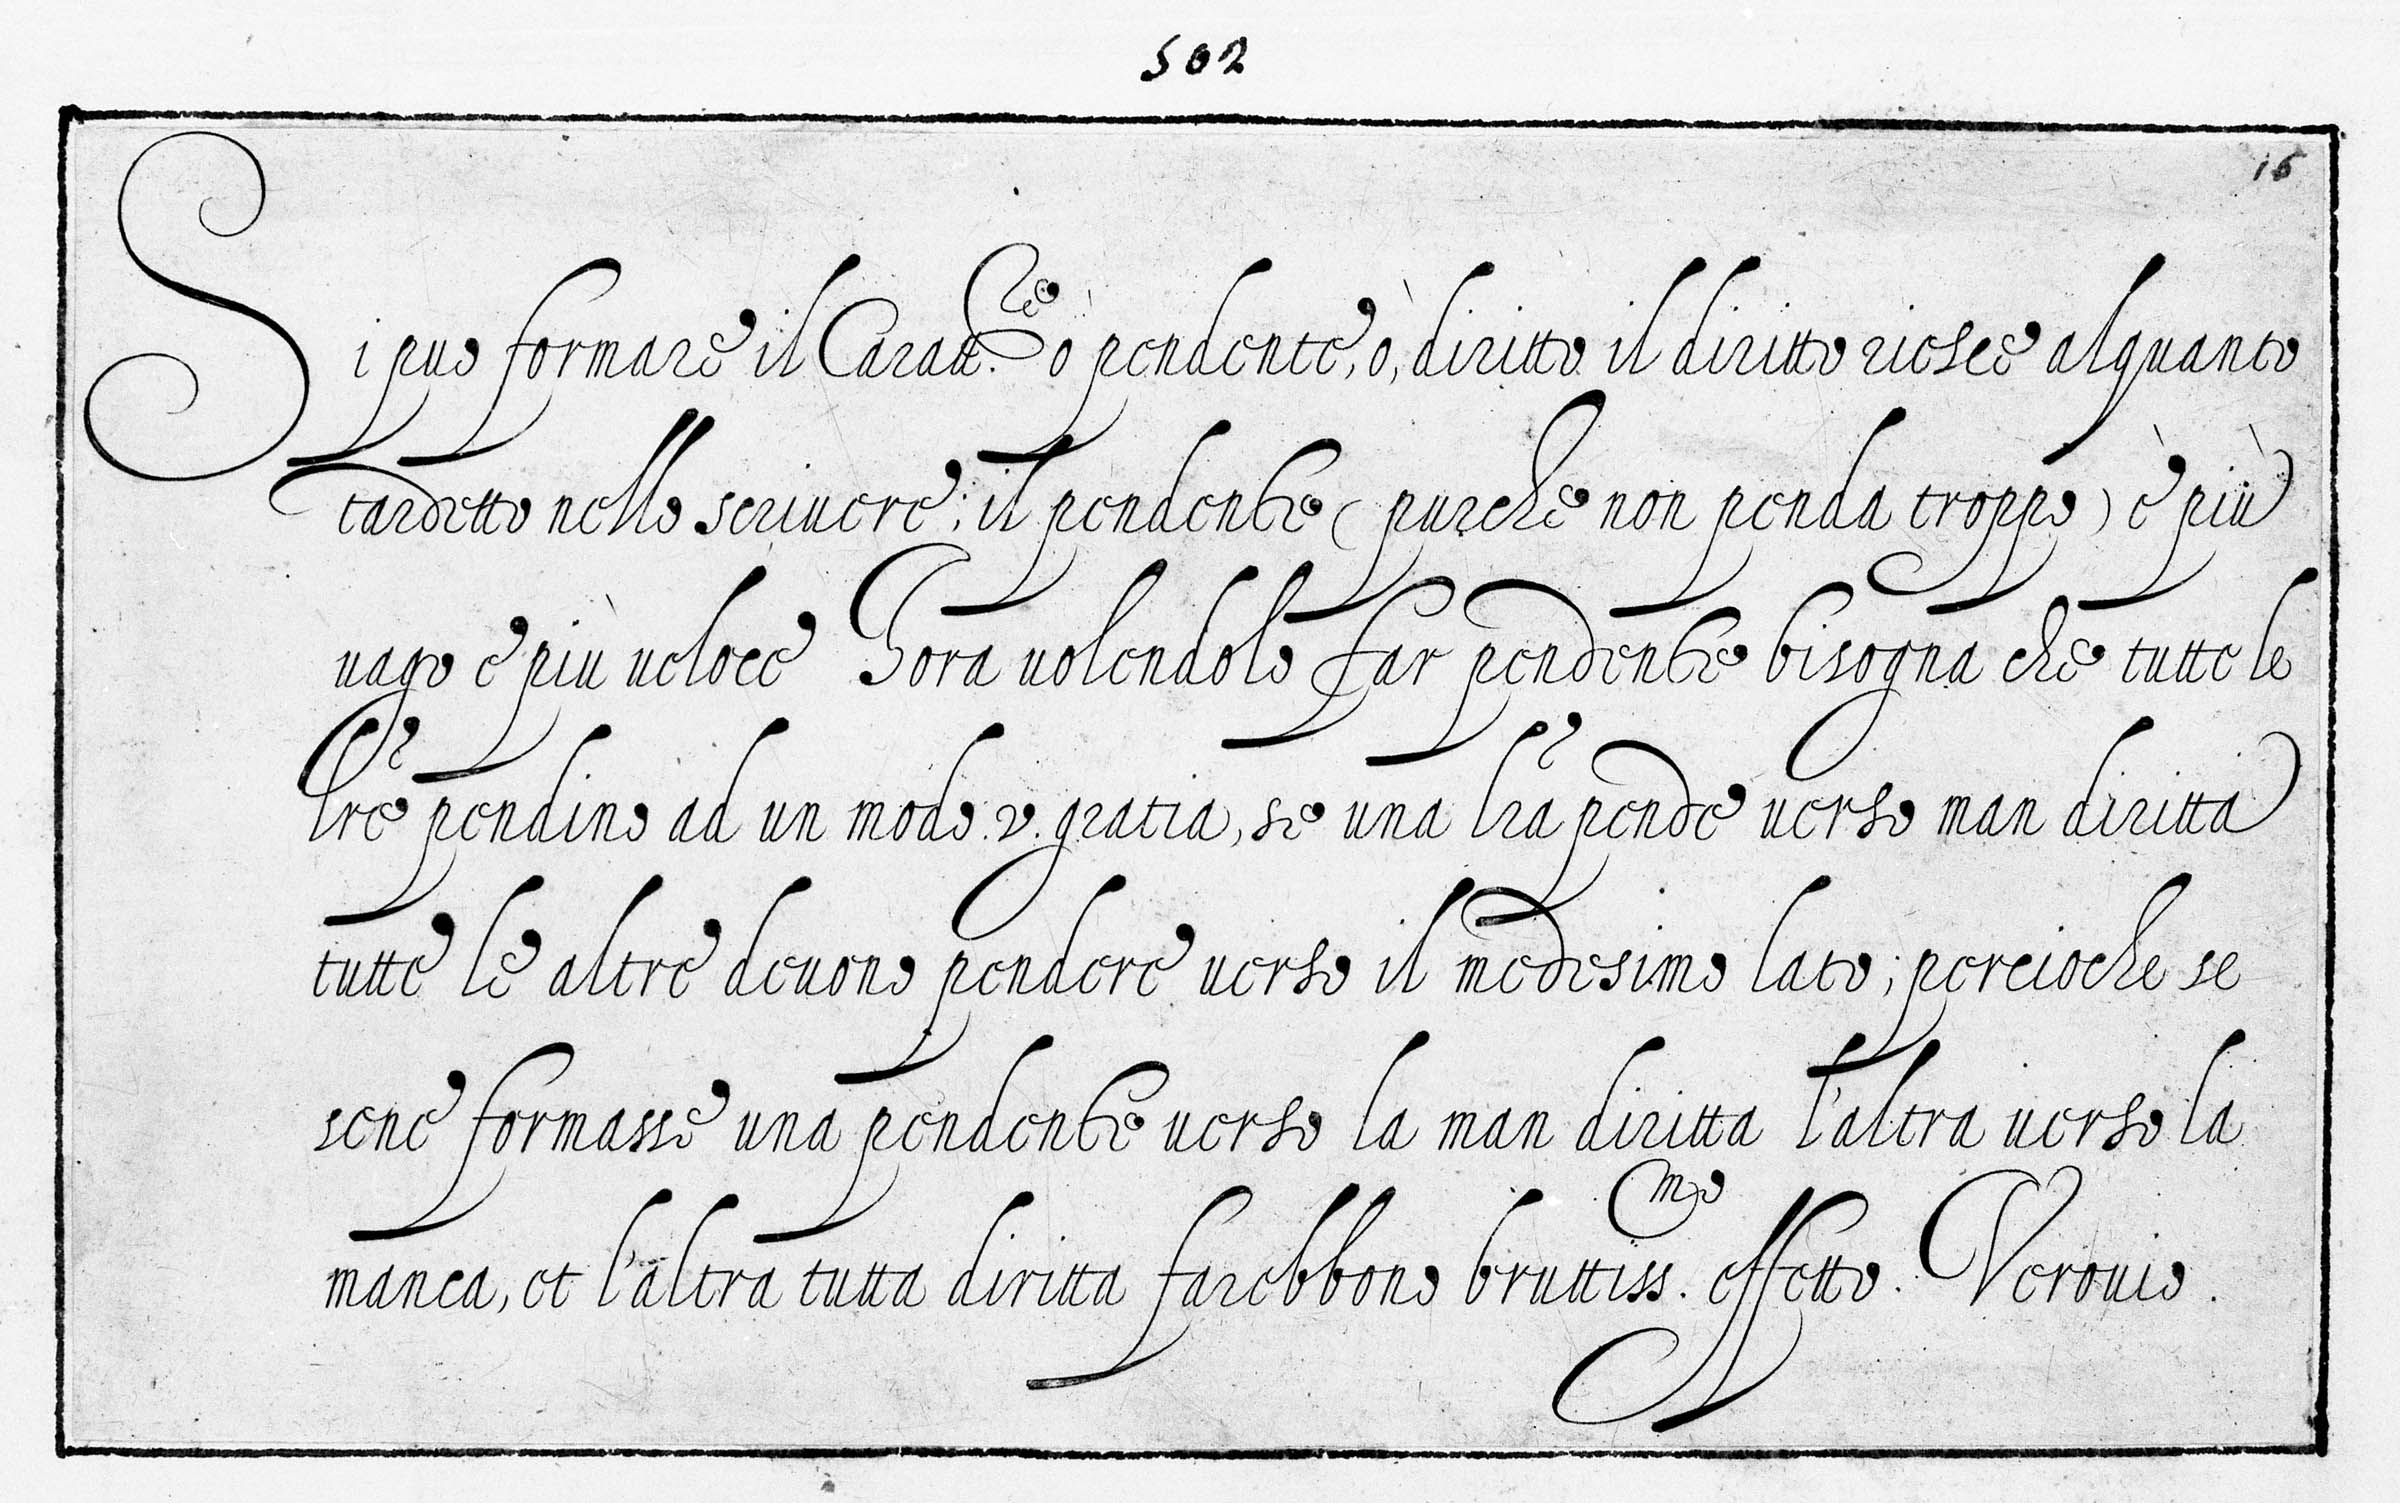 502
16
Si puo formare il Caratt.re ò pendente, ò, diritto il diritto riesce alquanto
tardetto nello scriuere; il pendente ( purche non penda troppo ) è più
uago e più ueloce Hora uolendolo far pendente bisogna che tutte le
lr̃e pendino ad un modo. v. gratia, se una lr̃a pende uerso man diritta
tutte le altre deuono pendere uerso il medesimo lato; percioche se
sene formasse una pendente uerso la man diritta l'altra uerso la
manca, et l'altra tutta diritta farebbono bruttiss.mo effetto. Verouio.